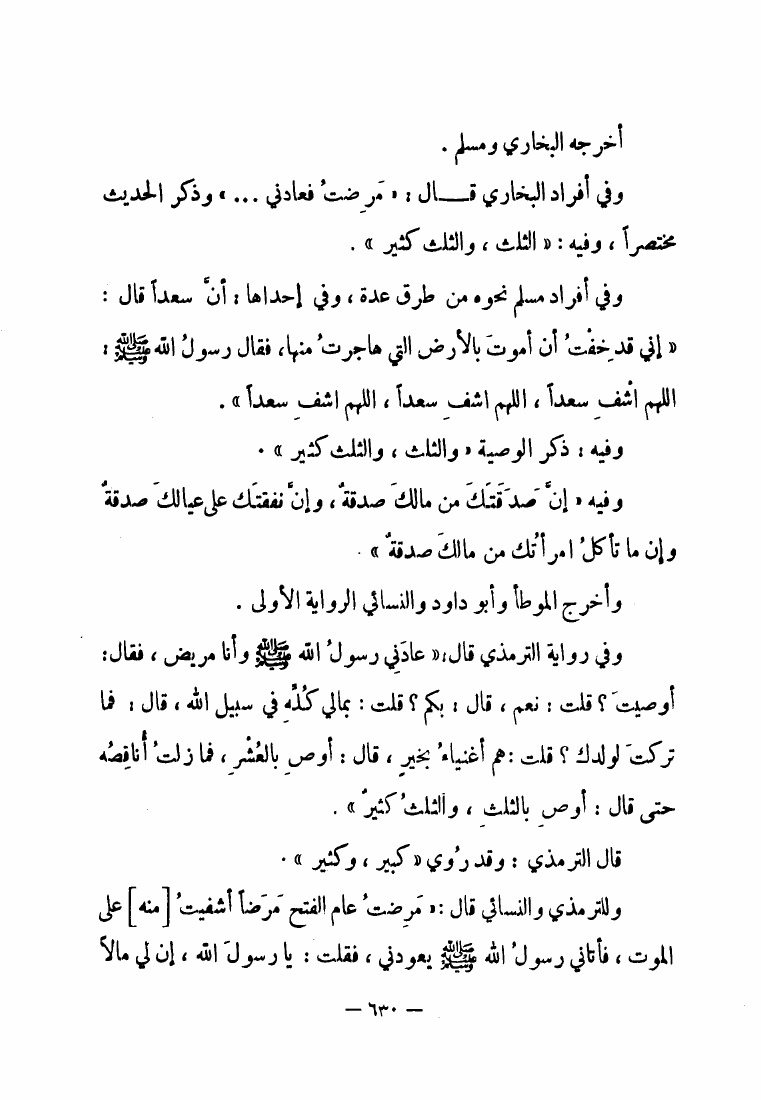 أخرجه البخاري ومسلم .
وفي أفراد البخاري قـــال : « مَرِضتُ فعادني ... » وذكر الحديث
مختصراً ، وفيه : « الثلث ، والثلث كثير » .
وفي أفراد مسلم نحوه من طرق عدة ، وفي إحداها : أنَّ سعداً قال :
« إني قد خِفْتُ أن أموتَ بالأرض التي هاجرتُ منها، فقال رسولُ الله ﷺ :
اللهم اشْفِ سعداً ، اللهم اشفِ سعداً ، اللهم اشفِ سعداً » .
وفيه : ذكر الوصية « والثلث ، والثلث كثير » .
وفيه « إنَّ صَدَقَتَكَ من مالكَ صدقةٌ ، وإنَّ نفقتَك على عيالكَ صدقةٌ
وإن ما تأكلُ امرأتُك من مالكَ صدقةٌ » .
وأخرج الموطأ وأبو داود والنسائي الرواية الأولى .
وفي رواية الترمذي قال: « عادَنِي رسولُ الله ﷺ وأنا مريض ، فقال:
أوصيتَ ؟ قلت : نعم ، قال : بكم ؟ قلت : بمالي كُلِّهِ في سبيل الله ، قال : فما
تركتَ لولدك ؟ قلت : هم أغنياءُ بخيرٍ ، قال : أوصِ بالعُشْرِ ، فما زلتُ أُناقِصُه
حتى قال : أوصِ بالثلثِ ، والثلثُ كثيرٌ » .
قال الترمذي : وقد رُوي « كبير ، وكثير » .
وللترمذي والنسائي قال : « مَرِضتُ عام الفتح مَرَضاً أشفيتُ [منه] على
الموت ، فأتاني رسولُ الله ﷺ يعودني ، فقلت : يا رسولَ الله ، إن لي مالاً
— ٦٣٠ —